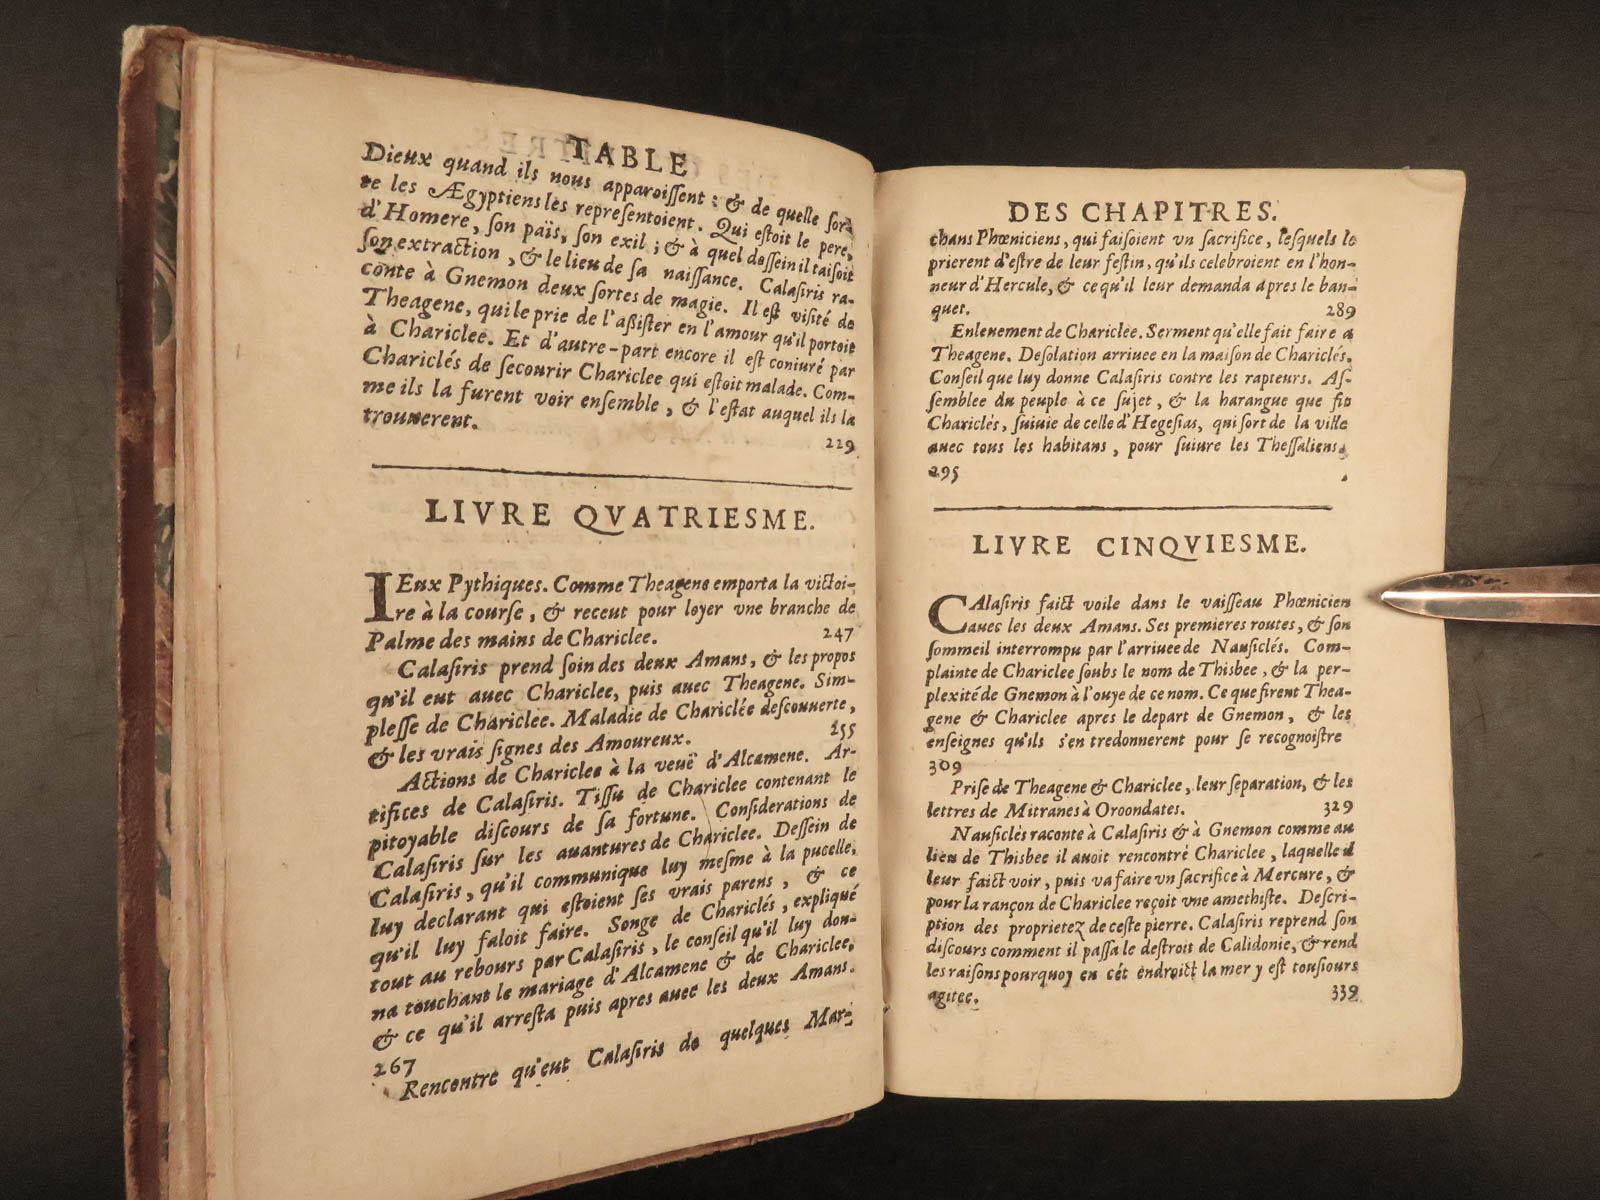 TABLE
Dieux quand ils nous apparoiſſent : & de quelle ſor-
te les Ægyptiens les repreſentoient. Qui eſtoit le pere,
d'Homere, ſon païs, ſon exil ; & à quel deſſein il taiſoit
ſon extraction, & le lieu de ſa naiſſance. Calaſiris ra-
conte à Gnemon deux ſortes de magie. Il eſt viſité de
Theagene, qui le prie de l'aßiſter en l'amour qu'il portoit
à Chariclee. Et d'autre-part encore il eſt coniuré par
Chariclés de ſecourir Chariclee qui eſtoit malade. Com-
me ils la furent voir enſemble, & l'eſtat auquel ils la
trouuerent. 229
LIVRE QVATRIESME.
IEux Pythiques. Comme Theagene emporta la victoi-
re à la courſe, & receut pour loyer vne branche de
Palme des mains de Chariclee. 247
Calaſiris prend ſoin des deux Amans, & les propos
qu'il eut avec Chariclee, puis avec Theagene. Sim-
pleſſe de Chariclee. Maladie de Chariclée deſcouuerte,
& les vrais ſignes des Amoureux. 255
Actions de Chariclee à la veuë d'Alcamene. Ar-
tifices de Calaſiris. Tiſſu de Chariclee contenant le
pitoyable diſcours de ſa fortune. Conſiderations de
Calaſiris ſur les auantures de Chariclee. Deſſein de
Calaſiris, qu'il communique luy meſme à la pucelle,
luy declarant qui eſtoient ſes vrais parens, & ce
qu'il luy faloit faire. Songe de Chariclés, expliqué
tout au rebours par Calaſiris, le conſeil qu'il luy don-
na touchant le mariage d'Alcamene & de Chariclee,
& ce qu'il arreſta puis apres avec les deux Amans.
267
Rencontre qu'eut Calaſiris de quelques Mar-
DES CHAPITRES.
chans Phœniciens, qui faiſoient vn ſacrifice, leſquels le
prierent d'eſtre de leur feſtin, qu'ils celebroient en l'hon-
neur d'Hercule, & ce qu'il leur demanda apres le ban-
quet. 289
Enleuement de Chariclee. Serment qu'elle fait faire a
Theagene. Deſolation arriuee en la maiſon de Chariclés.
Conſeil que luy donne Calaſiris contre les rapteurs. Aſ-
ſemblee du peuple à ce ſujet, & la harangue que fit
Chariclés, ſuiuie de celle d'Hegeſias, qui ſort de la ville
auec tous les habitans, pour ſuiure les Theſſaliens.
295
LIVRE CINQVIESME.
CAlaſiris faict voile dans le vaiſſeau Phœnicien
auec les deux Amans. Ses premieres routes, & ſon
ſommeil interrompu par l'arriuee de Nauſiclés. Com-
plainte de Chariclee ſoubs le nom de Thisbee, & la per-
plexité de Gnemon à l'ouye de ce nom. Ce que firent Thea-
gene & Chariclee apres le depart de Gnemon, & les
enſeignes qu'ils s'entredonnerent pour ſe recognoiſtre
309
Priſe de Theagene & Chariclee, leur ſeparation, & les
lettres de Mitranes à Oroondates. 329
Nauſiclés raconte à Calaſiris & à Gnemon comme au
lieu de Thisbee il auoit rencontré Chariclee, laquelle il
leur faict voir, puis va faire vn ſacrifice à Mercure, &
pour la rançon de Chariclee reçoit vne amethiſte. Deſcri-
ption des proprietez de ceſte pierre. Calaſiris reprend ſon
diſcours comment il paſſa le deſtroit de Calidonie, & rend
les raiſons pourquoy en cét endroict la mer y eſt touſiours
agitee. 339